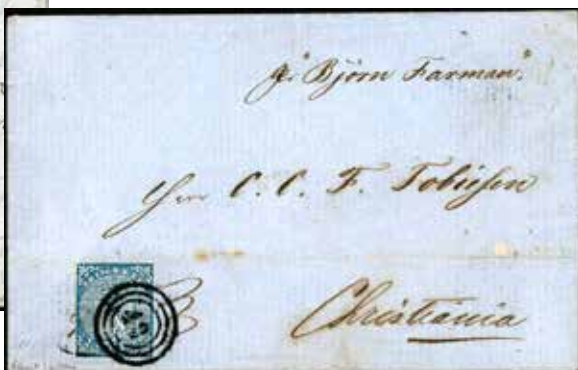 pr "Björn Farman".
Herr C. C. F. Tobiesen
Christiania